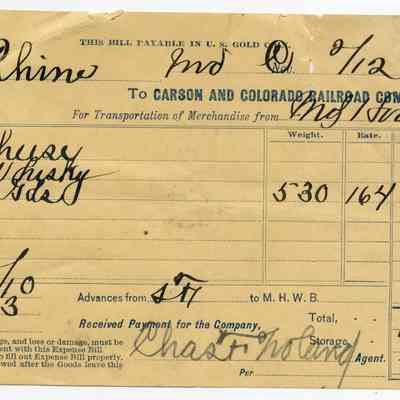 THIS BILL PAYABLE IN U. S. GOLD
Rhine Md
No. 2/12
To CARSON AND COLORADO RAILROAD COM
For Transportation of Merchandise from
Weight. Rate.
Whisky 530 164
10
3
Advances from to M. H. W. B.
Received Payment for the Company, Total,
ge, and loss or damage, must be Storage,
ent with this Expense Bill Chas F. Noland Agent.
to fill out Expense Bill properly.
wed after the Goods leave this Per